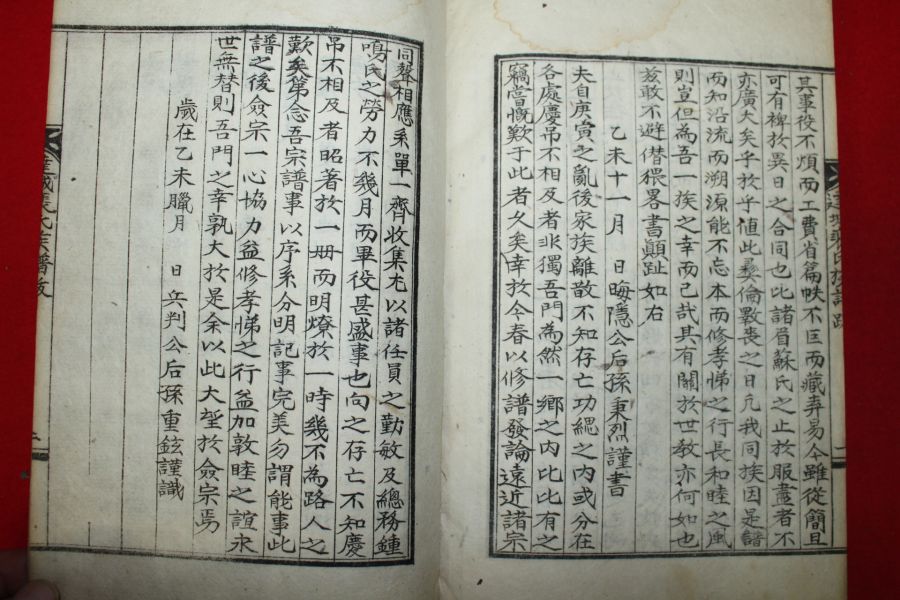 其事役不煩而工費省篇帙不匡而藏弆易今雖從簡且
可有裨於異日之合同也比諸眉蘇氏之止於服盡者不
亦廣大矣乎於乎値此彝倫斁喪之日凡我同族因是譜
而知沿流而溯源能不忘本而修孝悌之行長和睦之風
則豈但為吾一族之幸而已哉其有關於世敎亦何如也
玆敢不避僭猥畧書顚趾如右
乙未十一月 日晦隱公后孫秉烈謹書
夫自庚寅之亂後家族離散不知存亡功緦之內或分在
各處慶吊不相及者非獨吾門為然一鄕之內比比有之
竊嘗慨歎于此者久矣幸於今春以修譜發論遠近諸宗
同聲相應系單一齊收集尤以諸任員之勤敏及總務鍾
鳴氏之勞力不幾月而畢役甚盛事也向之存亡不知慶
吊不相及者昭著於一冊而明燎於一時幾不為路人之
歎矣第念吾宗譜事以序系分明記事完美勿謂能事此
譜之後僉宗一心協力益修孝悌之行益加敦睦之誼永
世無替則吾門之幸孰大於是余以此大望於僉宗焉
歲在乙未臘月 日兵判公后孫重鉉謹識
氏族譜